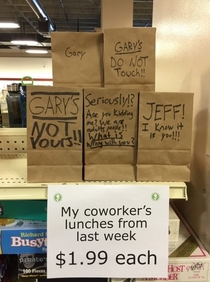 Gary
GARY'S
DO NOT
Touch!!
GARY'S
NOT
YOURS!!
Seriously!?
Are you kidding
me? We are
adults people!!
What is
wrong with you?
JEFF!
I know it
is you!!!
My coworker's
lunches from
last week
$1.99 each
Richard
Busy
100 Pieces